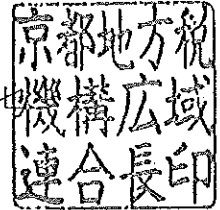 京都地方税
機構広域
連合長印